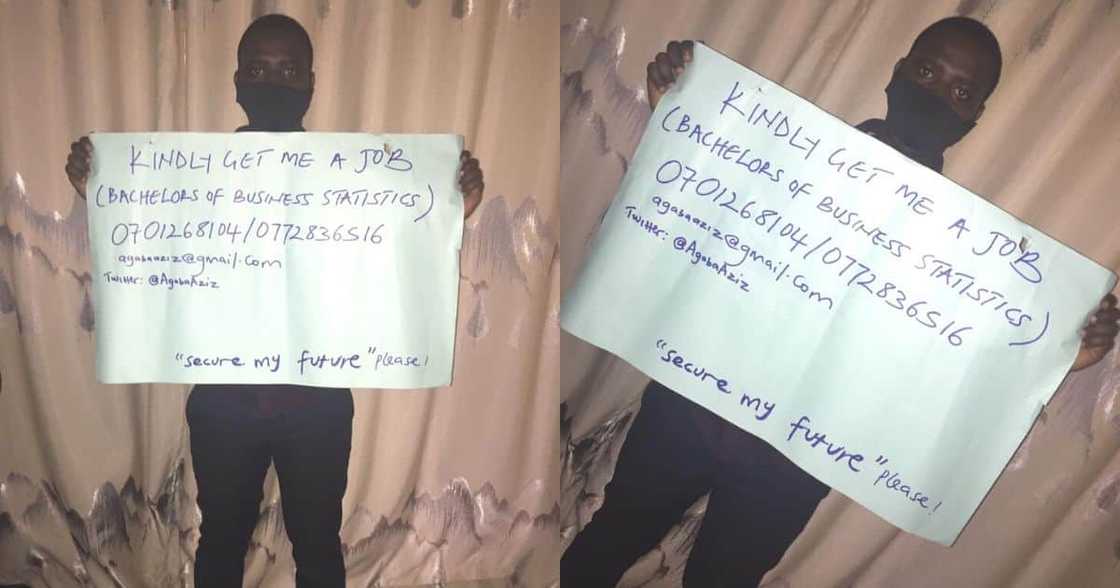 KINDLY GET ME A JOB
(BACHELORS OF BUSINESS STATISTICS)
0701268104/0772836516
agabaaziz@gmail.com
Twitter: @AgabaAziz
"secure my future" please!
KINDLY GET ME A JOB
(BACHELORS OF BUSINESS STATISTICS)
0701268104/0772836516
agabaaziz@gmail.com
Twitter: @AgabaAziz
"secure my future" please!